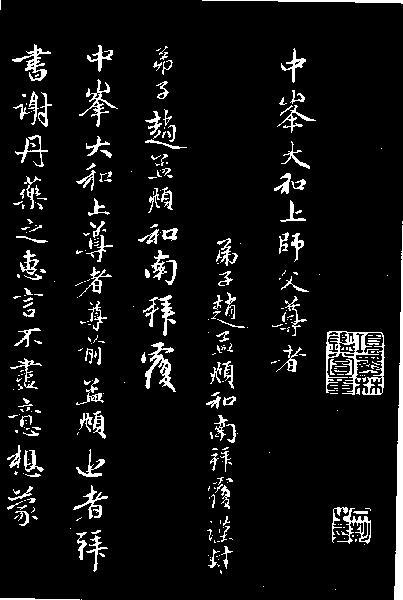 中峯大和上師父尊者
弟子趙孟頫和南拜覆謹封
弟子趙孟頫和南拜覆
中峯大和上尊者尊前孟頫近者拜
書謝丹藥之惠言不盡意想蒙